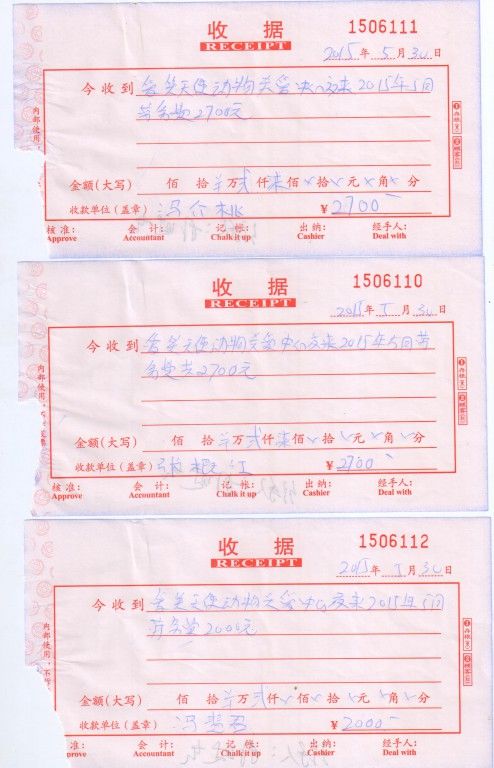 收 据
RECEIPT
1506111
2015年5月30日
今收到 含笑天使动物关爱中心交来2015年5月
劳务费2700元
金额(大写) 佰 拾 万 贰 仟 柒 佰 拾 元 角 分
收款单位(盖章) ¥2700
核准: 会 计: 记 帐: 出 纳: 经手人:
Approve Accountant Chalk it up Cashier Deal with
内部使用
收 据
RECEIPT
1506110
2015年5月30日
今收到 含笑天使动物关爱中心交来2015年5月劳
务费共2700元
金额(大写) 佰 拾 万 贰 仟 柒 佰 拾 元 角 分
收款单位(盖章) ¥2700
核准: 会 计: 记 帐: 出 纳: 经手人:
Approve Accountant Chalk it up Cashier Deal with
内部使用,
收 据
RECEIPT
1506112
2015年5月30日
今收到 含笑天使动物关爱中心交来2015年5月
劳务费2000元
金额(大写) 佰 拾 万 贰 仟 佰 拾 元 角 分
收款单位(盖章) ¥2000
准: 会 计: 记 帐: 出 纳: 经手人:
ve Accountant Chalk it up Cashier Deal with
内部使用,